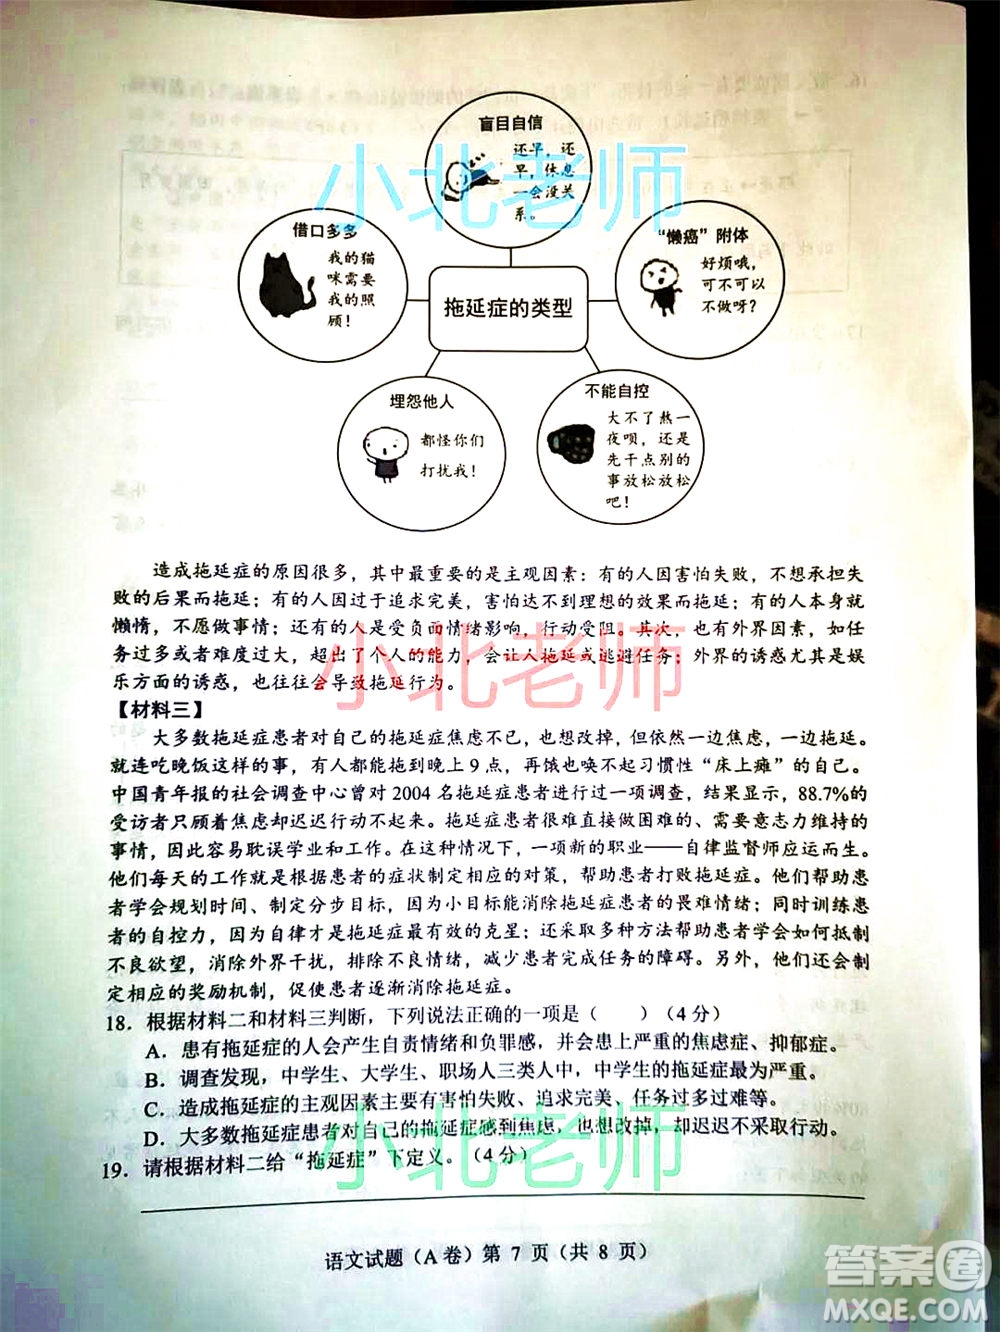 盲目自信
还早，还
早，休息
一会没关
系。
借口多多
我的猫
咪需要
我的照
顾！
“懒癌”附体
好烦哦，
可不可以
不做呀？
拖延症的类型
埋怨他人
都怪你们
打扰我！
不能自控
大不了熬一
夜呗，还是
先干点别的
事放松放松
吧！
造成拖延症的原因很多，其中最重要的是主观因素：有的人因害怕失败，不想承担失
败的后果而拖延；有的人因过于追求完美，害怕达不到理想的效果而拖延；有的人本身就
懒惰，不愿做事情；还有的人是受负面情绪影响，行动受阻。其次，也有外界因素，如任
务过多或者难度过大，超出了个人的能力，会让人拖延或逃避任务；外界的诱惑尤其是娱
乐方面的诱惑，也往往会导致拖延行为。
【材料三】
大多数拖延症患者对自己的拖延症焦虑不已，也想改掉，但依然一边焦虑，一边拖延。
就连吃晚饭这样的事，有人都能拖到晚上 9 点，再饿也唤不起习惯性“床上瘫”的自己。
中国青年报的社会调查中心曾对 2004 名拖延症患者进行过一项调查，结果显示，88.7%的
受访者只顾着焦虑却迟迟行动不起来。拖延症患者很难直接做困难的、需要意志力维持的
事情，因此容易耽误学业和工作。在这种情况下，一项新的职业——自律监督师应运而生。
他们每天的工作就是根据患者的症状制定相应的对策，帮助患者打败拖延症。他们帮助患
者学会规划时间、制定分步目标，因为小目标能消除拖延症患者的畏难情绪；同时训练患
者的自控力，因为自律才是拖延症最有效的克星；还采取多种方法帮助患者学会如何抵制
不良欲望，消除外界干扰，排除不良情绪，减少患者完成任务的障碍。另外，他们还会制
定相应的奖励机制，促使患者逐渐消除拖延症。
18．根据材料二和材料三判断，下列说法正确的一项是（　　）（4 分）
A．患有拖延症的人会产生自责情绪和负罪感，并会患上严重的焦虑症、抑郁症。
B．调查发现，中学生、大学生、职场人三类人中，中学生的拖延症最为严重。
C．造成拖延症的主观因素主要有害怕失败、追求完美、任务过多过难等。
D．大多数拖延症患者对自己的拖延症感到焦虑，也想改掉，却迟迟不采取行动。
19．请根据材料二给“拖延症”下定义。（4 分）
语文试题（A 卷）第 7 页（共 8 页）
小北老师
小北老师
小北老师
答案圈
MXQE.COM